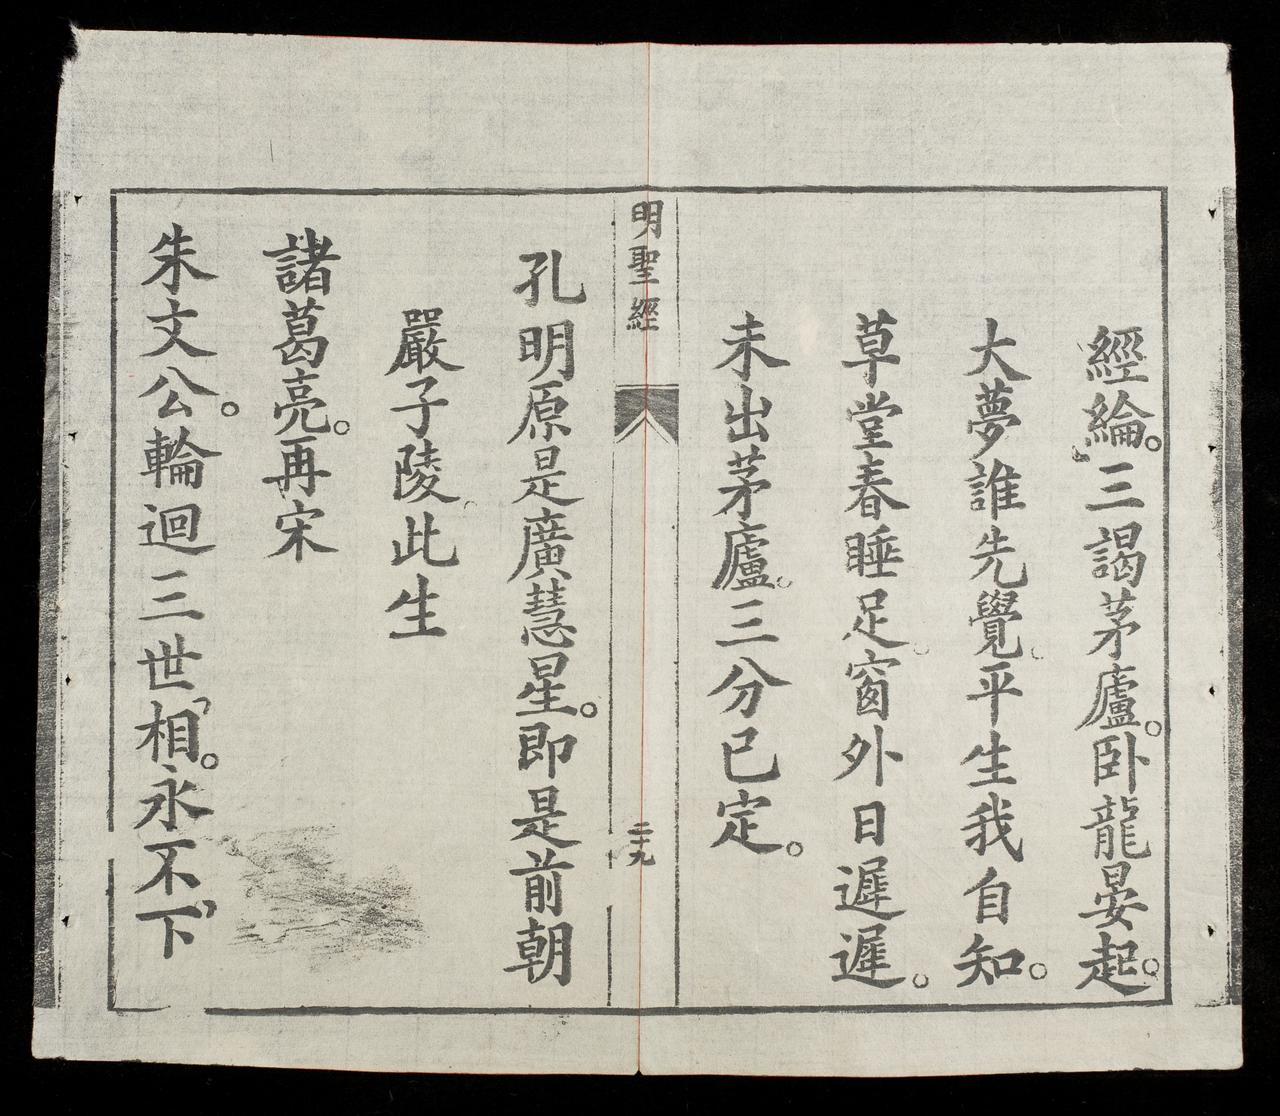 經綸。三謁茅廬。卧龍晏起。
大夢誰先覺。平生我自知。
草堂春睡足。窗外日遲遲。
未出茅廬。三分已定。
明聖經
二十九
孔明原是廣慧星。即是前朝
嚴子陵。此生
諸葛亮。再宋
朱文公。輪迴三世相。永不下